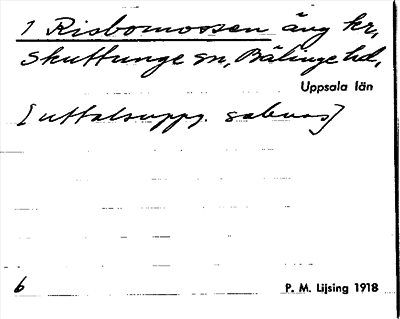 1 Risbomossen äng kr,
Skuttunge sn, Bälinge hd,
Uppsala län
[uttalsuppg. saknas]
6
P. M. Lijsing 1918